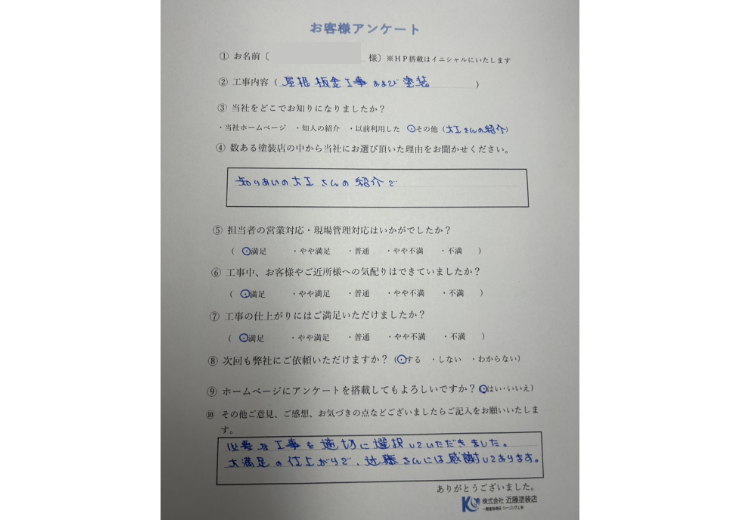 お客様アンケート
① お名前〔 様〕※HP搭載はイニシャルにいたします
② 工事内容（ 屋根板金工事および塗装 ）
③ 当社をどこでお知りになりましたか？
・当社ホームページ ・知人の紹介 ・以前利用した ・その他（大工さんの紹介）
④ 数ある塗装店の中から当社にお選び頂いた理由をお聞かせください。
知りあいの大工さんの紹介で
⑤ 担当者の営業対応・現場管理対応はいかがでしたか？
（ ・満足 ・やや満足 ・普通 ・やや不満 ・不満 ）
⑥ 工事中、お客様やご近所様への気配りはできていましたか？
（ ・満足 ・やや満足 ・普通 ・やや不満 ・不満 ）
⑦ 工事の仕上がりにはご満足いただけましたか？
（ ・満足 ・やや満足 ・普通 ・やや不満 ・不満 ）
⑧ 次回も弊社にご依頼いただけますか？（・する ・しない ・わからない）
⑨ ホームページにアンケートを搭載してもよろしいですか？（はい・いいえ）
⑩ その他ご意見、ご感想、お気づきの点などございましたらご記入をお願いいたしま
す。
必要な工事を適切に選択していただきました。
大満足の仕上がりで、近藤さんには感謝しております。
ありがとうございました。
株式会社 近藤塗装店